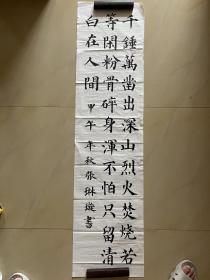 千錘萬凿出深山烈火焚烧若
等閑粉骨碎身渾不怕只留清
白在人間 甲午年秋张琳璇書